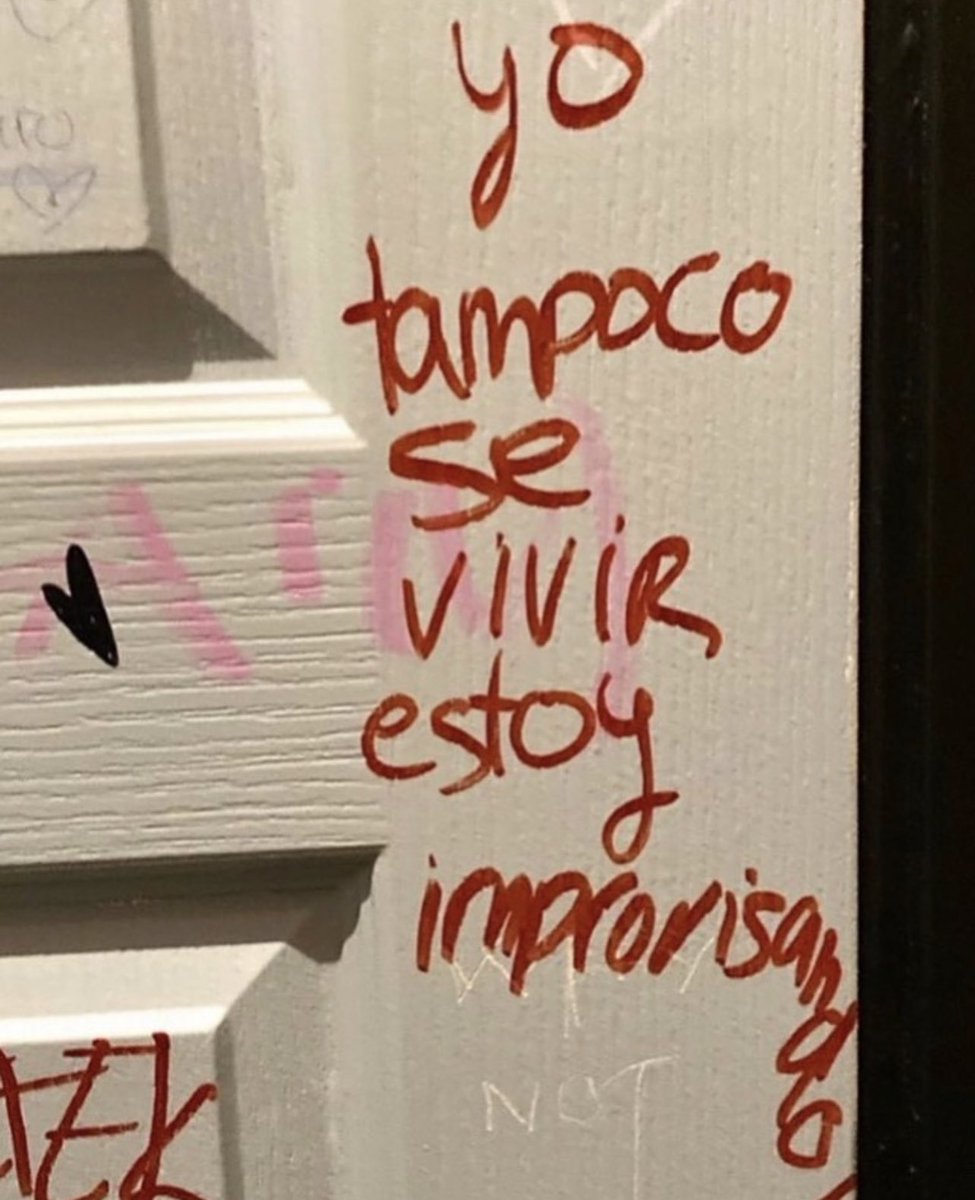 yo
tampoco
se
vivir
estoy
improvisando
WHY
NOT